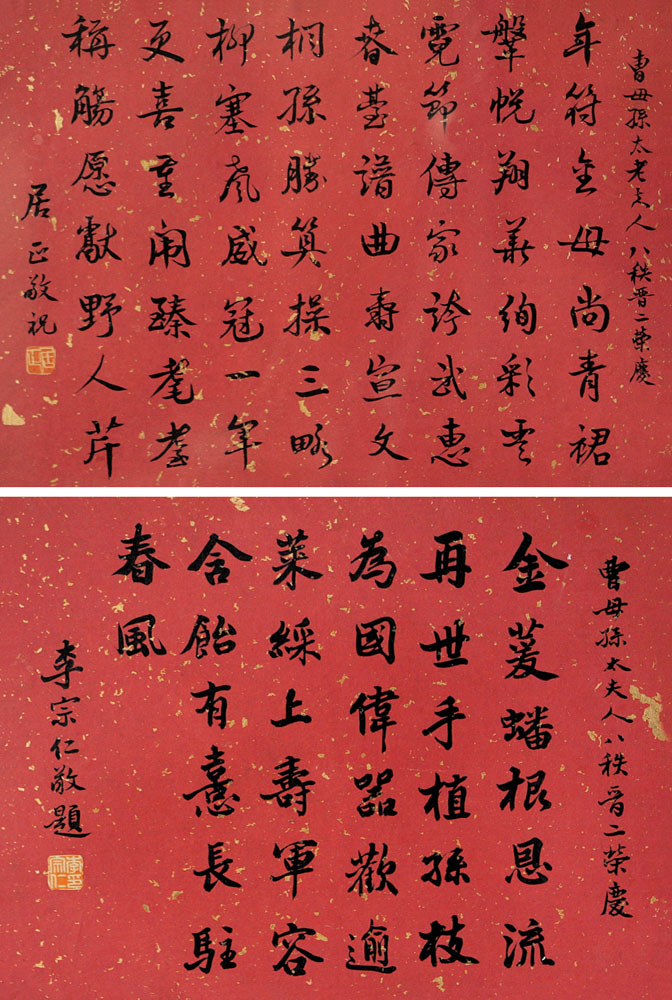 曹母孫太老夫人八秩晉二榮慶
年符金母尚青裙
鞶帨翔華絢彩雲
霓節傳家誇武惠
春臺譜曲壽宣文
桐孫勝算操三略
柳塞風威冠一軍
更喜重闈臻耄耋
稱觴愿獻野人芹
居正敬祝
居正
曹母孫太夫人八秩晉二榮慶
金萲蟠根恩流
再世手植孫枝
為國偉器歡逾
萊綵上壽軍容
含飴有憙長駐
春風
李宗仁敬題
李宗仁印